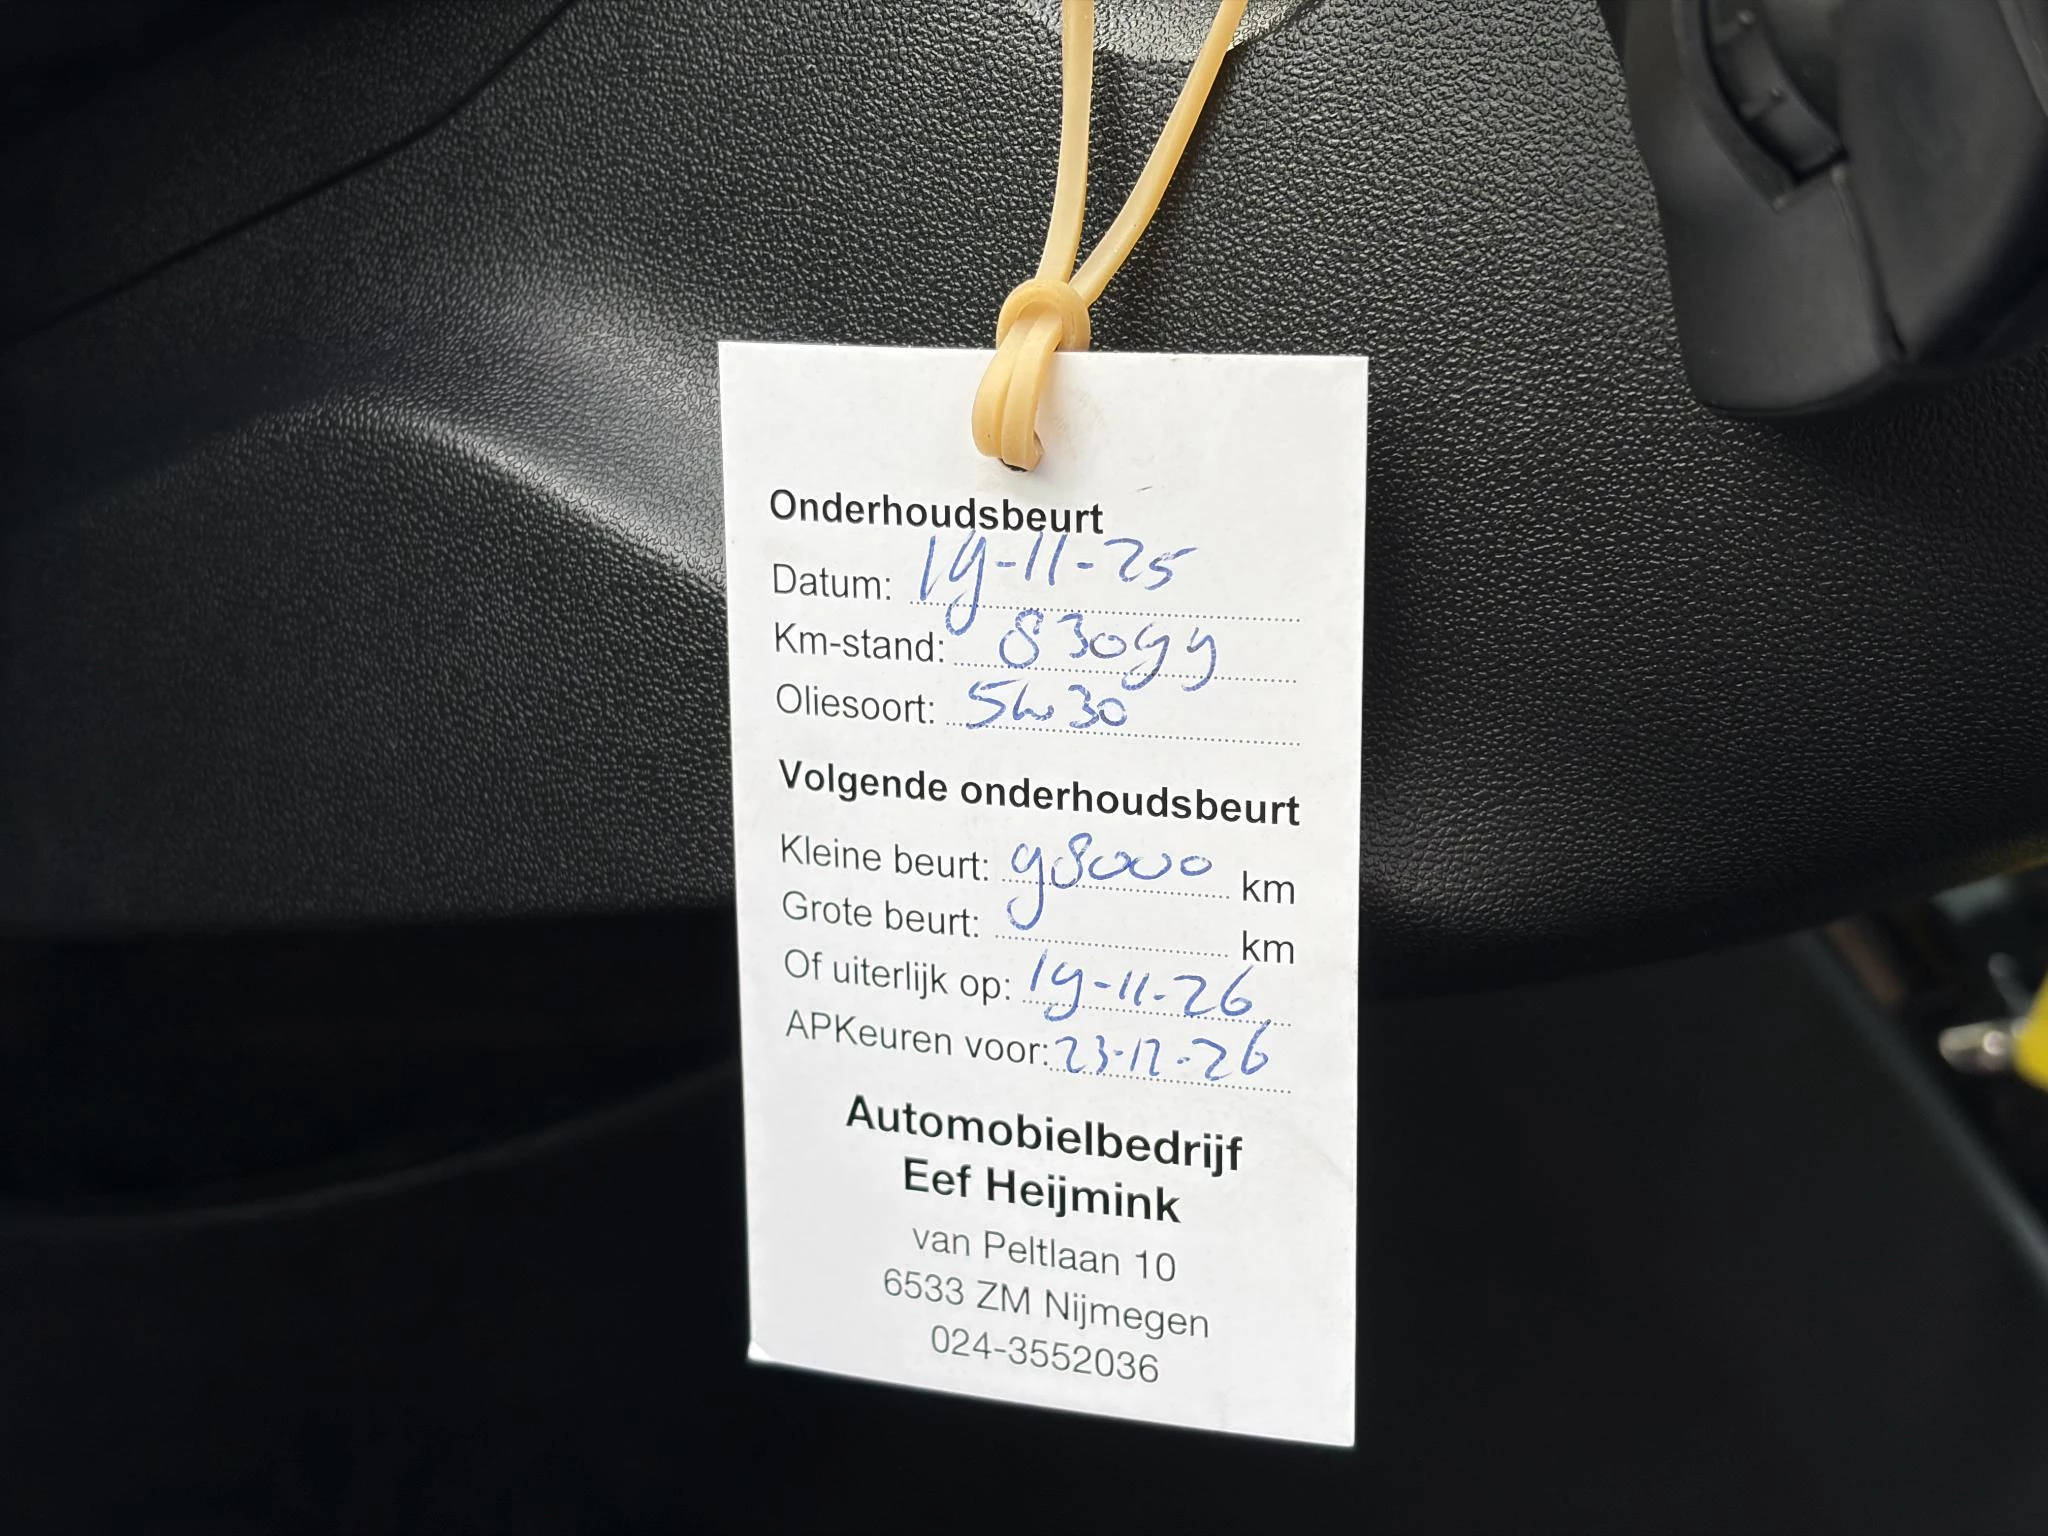 Onderhoudsbeurt
Datum: 19-11-25
Km-stand: 83099
Oliesoort: 5w30
Volgende onderhoudsbeurt
Kleine beurt: 98000 km
Grote beurt: km
Of uiterlijk op: 19-11-26
APKeuren voor: 23-12-26
Automobielbedrijf
Eef Heijmink
van Peltlaan 10
6533 ZM Nijmegen
024-3552036